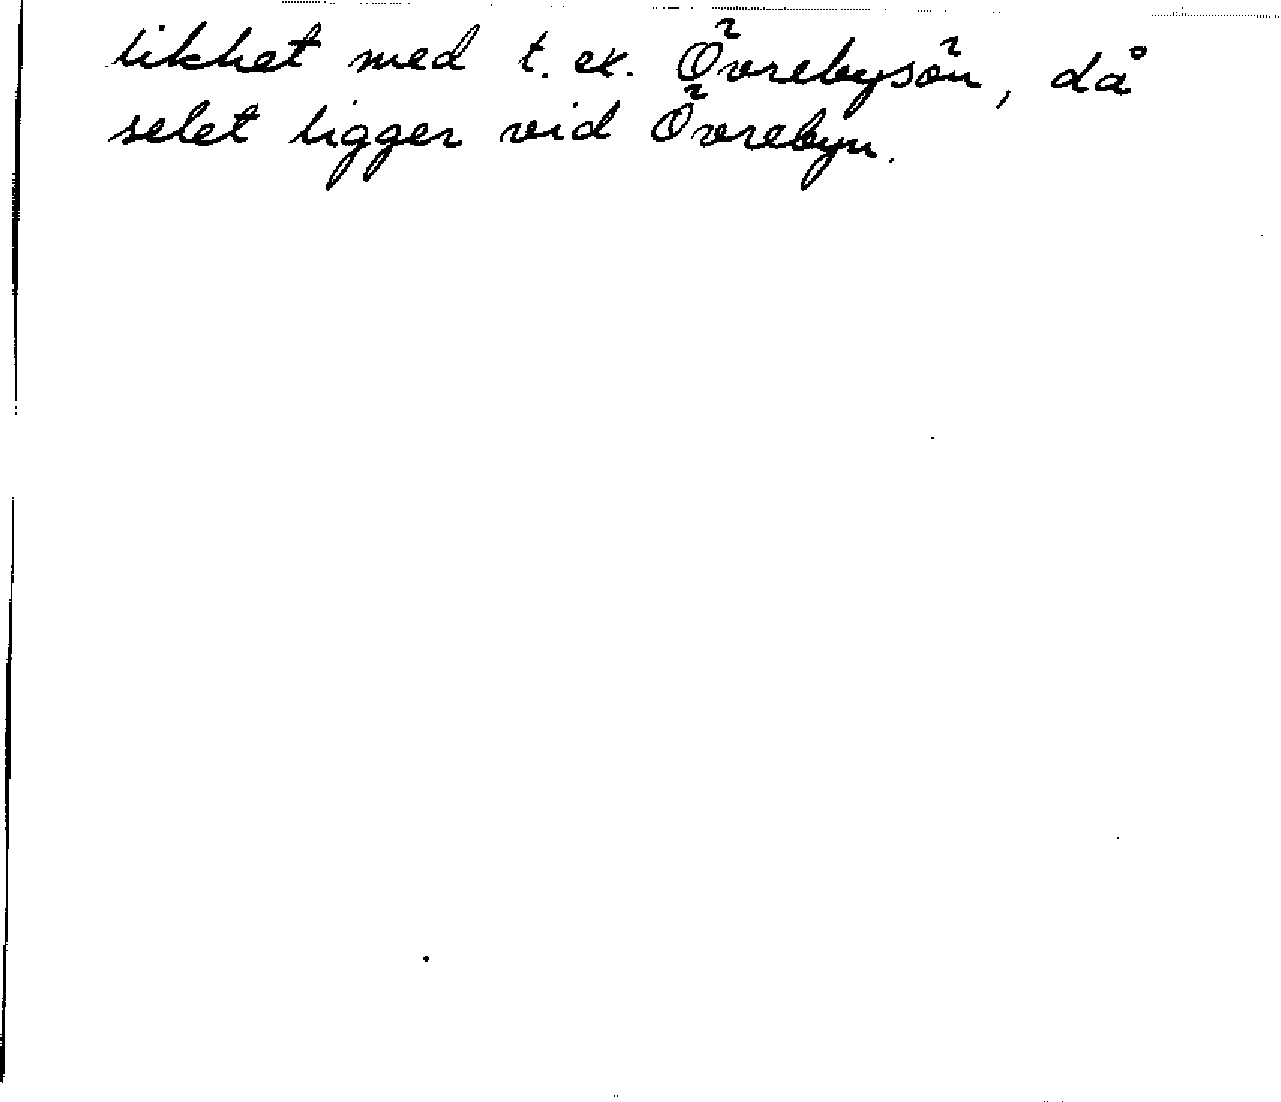 likhet med t. ex. Övrebysön, då
selet ligger vid Övrebyn.